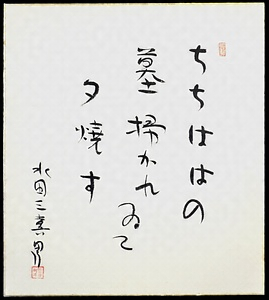 ちちははの
墓掃かれゐて
夕焼す
水田三喜男